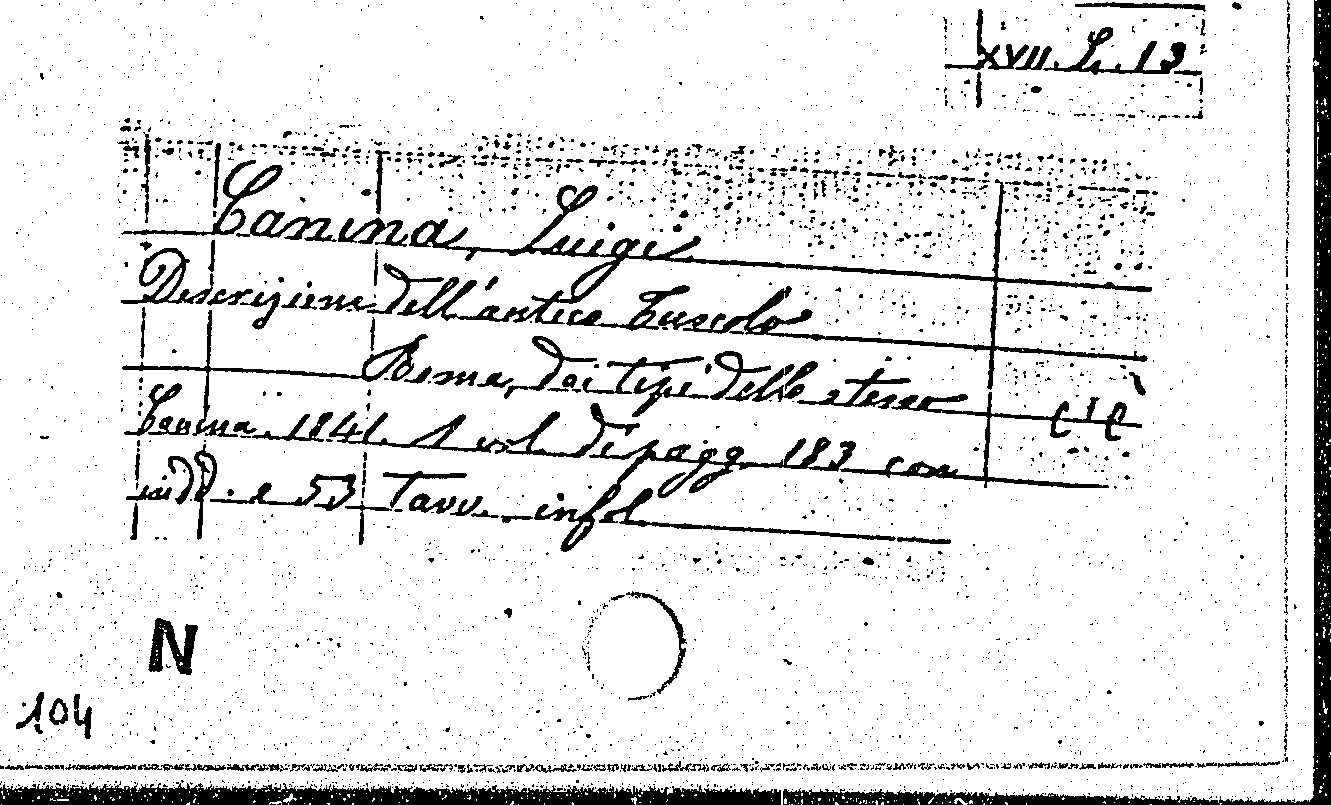 XVII. L. 13
Canina, Luigi
Descrizione dell'antico Tuscolo
Roma, dai tipi dello stesso
Canina. 1841. 1 vol. di pagg. 183 con
indd. e 53 Tavv. infol.
N
104